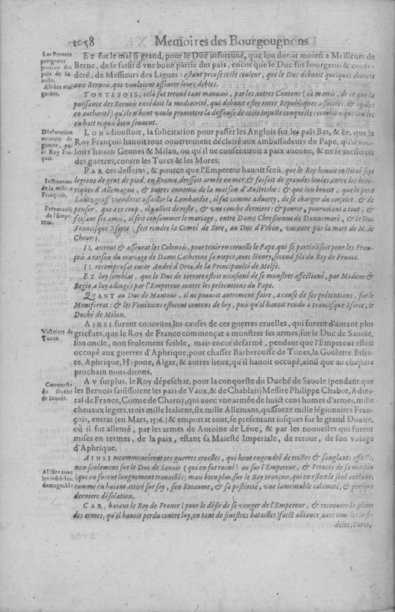 1058 Memoires des Bourgougnons
ET fut le mal si grand, pour le Duc infortuné, que lon donoit moien à Messieurs de
Berne, de se saisir d'vne bone partie des païs, encor que le Duc fut bourgeois & confe-
deré, de Messieurs des Ligues: estant prinse ceste couleur, que le Duc debuoit quelques deniers
aux Bernois, que vouloient asseurer leurs debtes.
TOVTEFOIS, cela fut trouué tant mauuais, par les autres Cantons (
puissance des Bernois excedoit la mediocrité, qui debuoit estre entre Republiques associées, & égales
en authorité) qu'ils n'ont voulu promettre la defense de ceste conqueste
en haut requis bien souuent.
LON adioustoit, la solicitation pour passer les Anglois sur les païs Bas, & en, que le
Roy François hauoit tout ouuertement declairé aux ambassadeurs du Pape, qu'il vou-
loit hauoir Genues & Milan, ou qu'il ne consentiroit à paix aucune, & ne se mesleroit
des guerres, contre les Turcs & les Mores.
PAR ces desseins, & pource que l'Empereur hauoit sceu, que le Roy hauoit
legions de gens de pied en France, dressoit armée en mer, & faisoit de grandes leuées, entre les here-
tiques d'Allemagne, & autres ennemis de la maison d'Austriche: & que
Lantzgraff viendroit assaillir la Lombardie, il fut comme aduerty, de se charger du corselet, & de
penser, que à ce coup, il y alloit de reste, & vne touche derniere: & pourtant, pouruoiant à tout, &
faisant ses amis, il feit consummer le mariage, entre Dame Chrestienne de Dannemarch, & le Duc
Francisque Sforce: feit rendre la Comté de Sore, au Duc d'Vrbin, vacante par la mort de M. de
Cheuri.
IL accreut & asseura les Celonois, pour tenir en ceruelle le Pape, qui se partialisoit pour les Fran-
çois, a raison du mariage de Dame Catherine sa niepce, auec Henry, second fils du Roy de France.
IL recompensa encor André d'Oria, de la Principauté de Melfe.
ET luy sembloit, que le Duc de Ferrare estoit occasioné de se monstrer affectioné, par Modene &
Regio a luy adiugés par l'Empereur contre les pretentions du Pape.
QVANT au Duc de Mantoüe, il ne pouuoit autrement faire, a cause de ses pretentions, sur le
Montferrat: & les Venitiens estoient contens de luy, puis qu'il hauoit rendu a Francisque Sforce, le
Duché de Milan.
AINSI furent couuées les causes de ces guerres cruelles, qui furent d'autant plus
griefues, que le Roy de France commençat a monstrer ses armes, sur le Duc de Sauoie,
son oncle, non seulement foible, mais encor desarmé, pendant que l'Empereur estoit
occupé aux guerres d'Aphrique, pour chasser Barberousse de Tunes, la Goulette Biser-
te, Aphrique, Hippone, Alger, & autres lieux, qu'il hauoit occupé, ainsi que au chapitre
prochain nous dirons.
AV surplus, le Roy depeschat, pour la conqueste du Duché de Sauoie (pendant que
les Bernois saisissoient les païs de Vaux, & de Chablais) Messire Philippe Chabot, Admi-
ral de France, Comte de Charni, qui auec vne armée de huict cens homes d'armes, mille
cheuaux legers, trois mille Italiens, six mille Allemans, quattorze mille légionaires Fran-
çois, entrat (en Mars, 1536.) & emportat tout, se presentant iusques sur le grand Doaire,
où il fut allenté, par les armes de Antoine de Léue, & par les nouuelles qui furent
mises en termes, de la paix, estant sa Maiesté Imperiale, de retour, de son voiage
d'Aphrique.
AINSI recommencèrent ces guerres cruelles, qui hont engendré de tristes & sanglants effects,
non seulement sur le Duc de Sauoie (qui en fut ruiné) ou sur l'Empereur, & Princes de sa maison
(qui en furent longuement trauaillés) mais bien plus, sur le Roy François, qui en estant le seul autheur,
comme en haiant attiré sur soy, son Roiaume, & sa posterité, vne lamentable calamité, & presque
derniere disolation.
CAR, haiant le Roy de France (pour le désir de se venger de l'Empereur, & recouurer la gloire
des armes, qu'il hauoit perdu contre luy, en tant de sinistres batailles) faict alliance, auec tous les re-
belles, Turcs,
Les Bernois
preignent
portion des
païs de Sa-
uoie.
Déclaration
Pretensions
de l'Empe-
Victoire de
Tunes.
Conqueste
du Duché
de Sauoie.
Alliance auec
les infidèles,
domageable.